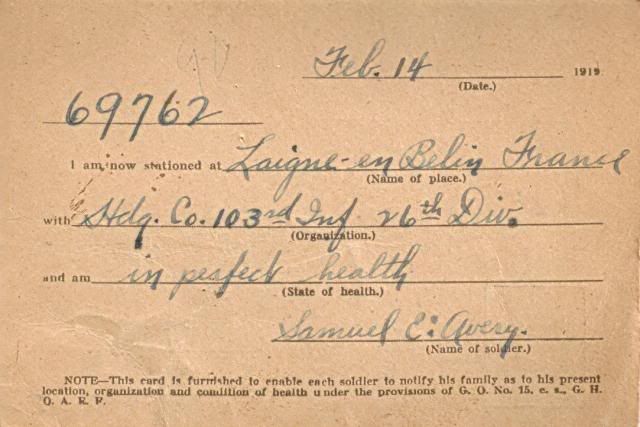 Feb. 14 1919
(Date.)
69762
I am now stationed at Laigne-en Belin France
(Name of place.)
with Hdq. Co. 103rd Inf 26th Div.
(Organization.)
and am in perfect health
(State of health.)
Samuel E. Avery.
(Name of soldier.)
NOTE—This card is furnished to enable each soldier to notify his family as to his present
location, organization and condition of health under the provisions of G. O. No. 15, c. s., G. H.
Q. A. E. F.